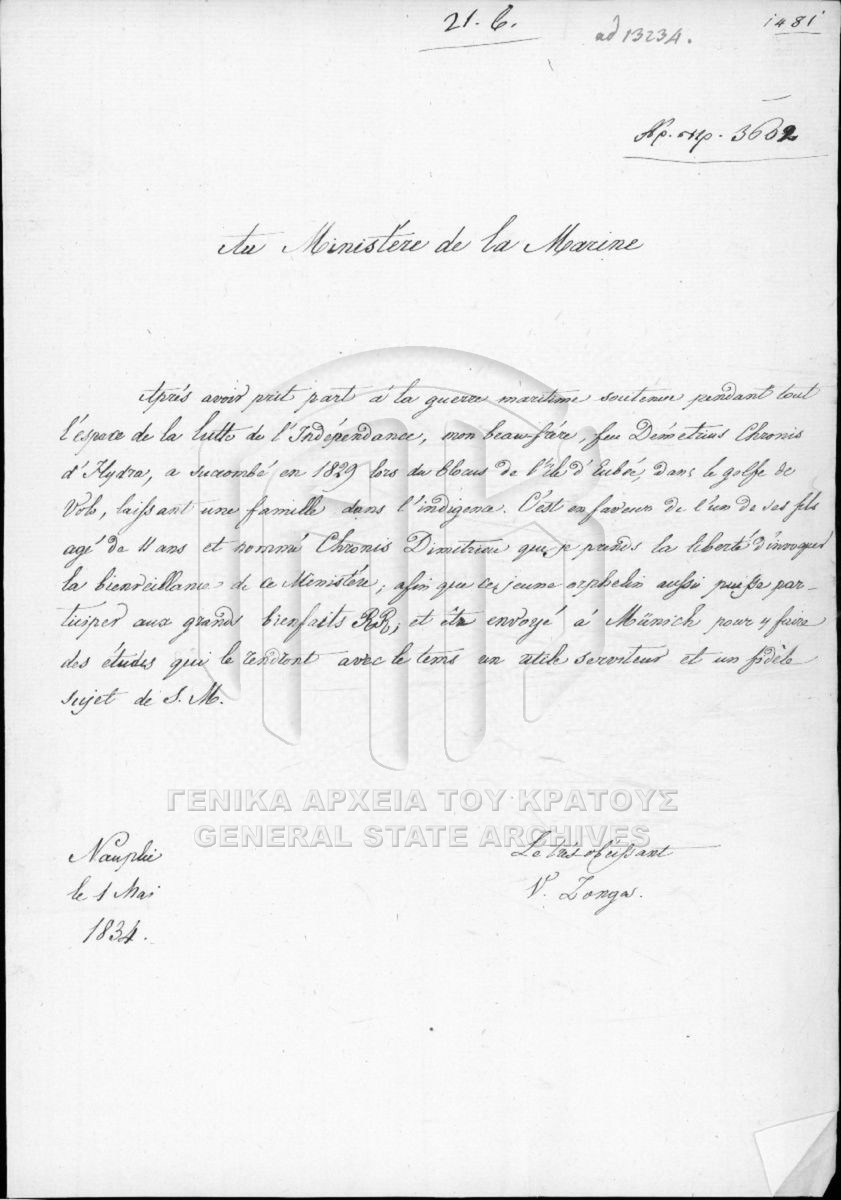 21. 6.
ad 13234.
1481
Αρ. πρ. 3602
Au Ministère de la Marine
Après avoir prit part à la guerre maritime soutenue pendant tout
l'éspace de la lutte de l'Indépendance, mon beau-frére, feu Démetrius Chronis
d'Hydra, a succombé en 1829 lors du blocus de l'île d'Eubée, dans le golfe de
Volo, laissant une famille dans l'indigence. C'est en faveur de l'un de ses fils
agé de 11 ans et nommé Chronis Dimitriou que je prends la liberté d'invoquer
la bienveillance de ce Ministére, afin que ce jeune orphelin aussi puisse par-
ticiper aux grands bienfaits RR, et être envoyé à Münich pour y faire
des études qui le rendront avec le tems un utile serviteur et un fidèle
sujet de S. M.
ΓΕΝΙΚΑ ΑΡΧΕΙΑ ΤΟΥ ΚΡΑΤΟΥΣ
GENERAL STATE ARCHIVES
Nauplie
le 1 Mai
1834.
Le très obéissant
V. Zonga.